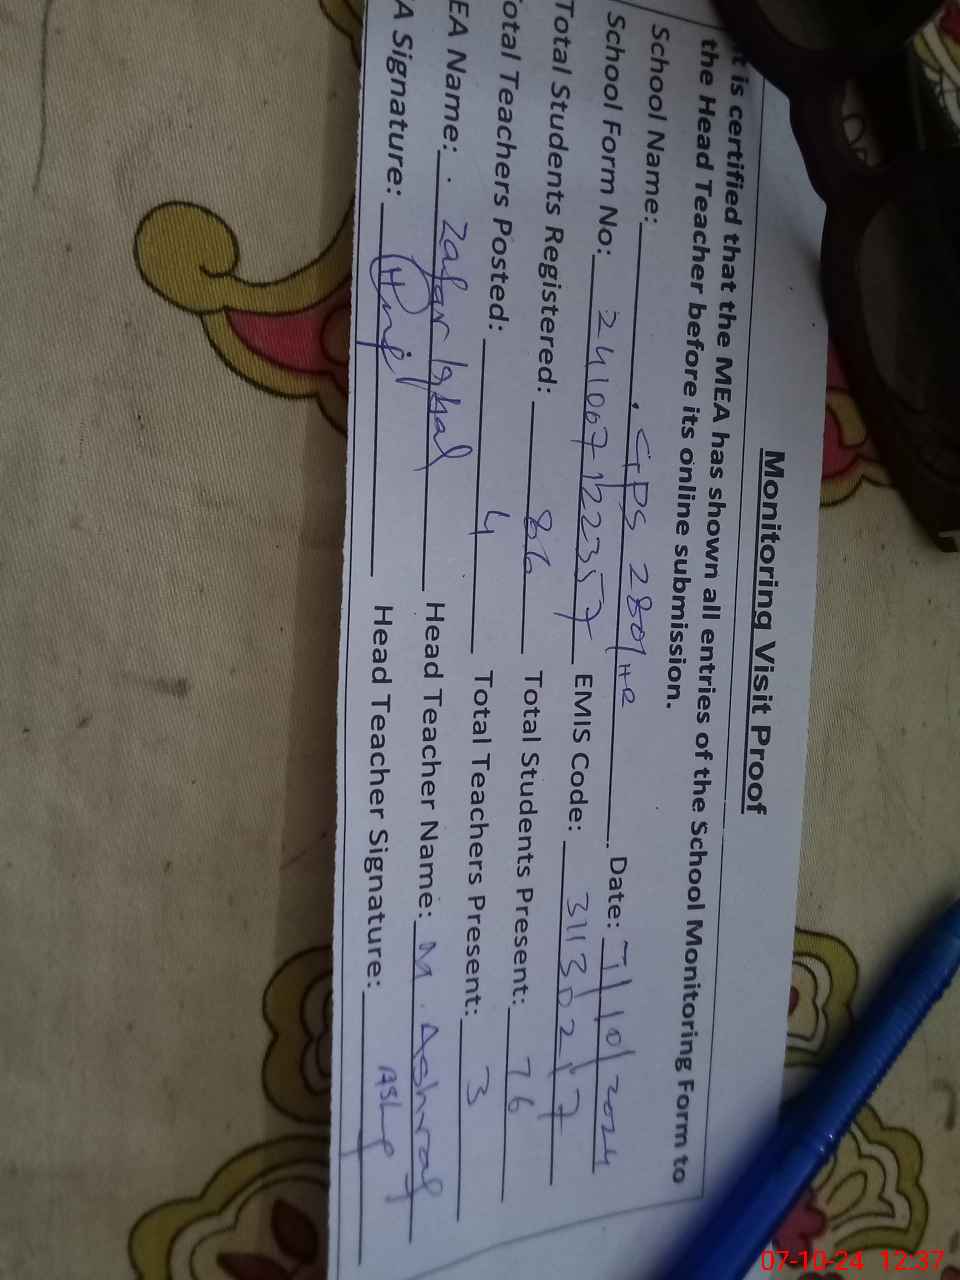 Monitoring Visit Proof
t is certified that the MEA has shown all entries of the School Monitoring Form to
the Head Teacher before its online submission.
School Name: GPS 280/HR Date: 7/10/2024
School Form No: 241007122357 EMIS Code: 31130217
Total Students Registered: 86 Total Students Present: 76
otal Teachers Posted: 4 Total Teachers Present: 3
EA Name: Zafar Iqbal Head Teacher Name: M. Ashraf
A Signature: Head Teacher Signature:
07-10-24 12:37